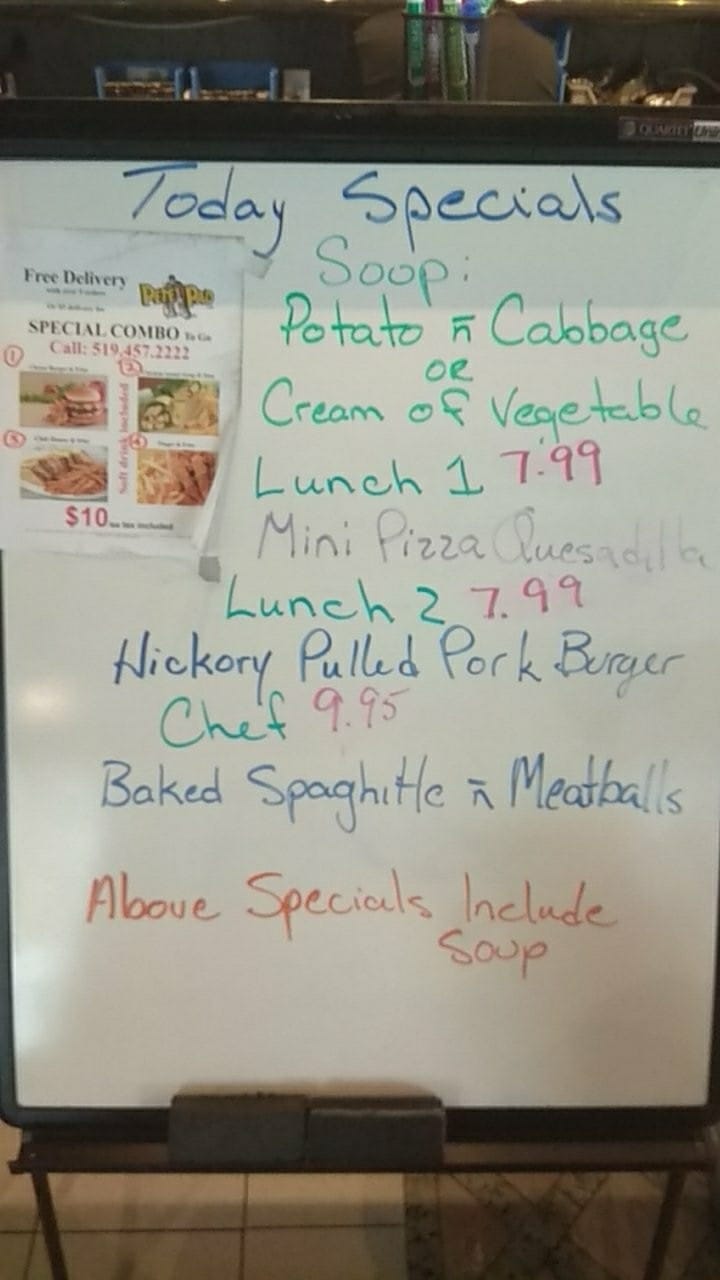 QUARTET
Today Specials
Soop:
Potato n̄ Cabbage
OR
Cream of Vegetable
Lunch 1 7.99
Mini Pizza Quesadilla
Lunch 2 7.99
Hickory Pulled Pork Burger
Chef 9.95
Baked Spaghittle n̄ Meatballs
Above Specials Include
Soup
Free Delivery
SPECIAL COMBO To Go
Call: 519.457.2222
1
2
3
4
Soft drink included
$10 tax included